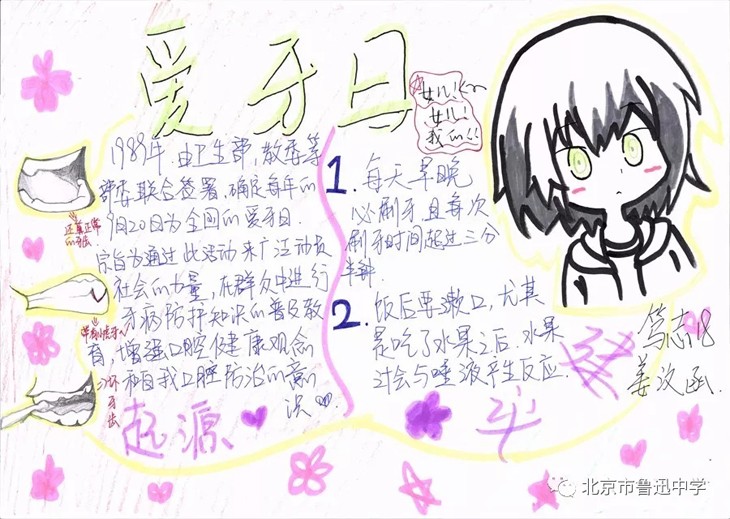 爱牙日
女儿！
女儿！
我的！！
1989年，由卫生部，教委等
部委联合签署，确定每年的
9月20日为全国的爱牙日．
宗旨为通过此活动来广泛动员
社会的力量，在群众中进行
牙病防护知识的普及教
育，增强口腔健康观念
和自我口腔防治的意
识
起源
1．每天早晚
必刷牙，且每次
刷牙时间超过三分
半钟．
2．饭后要漱口，尤其
是吃了水果之后．水果
汁会与唾液产生反应．
还算正常
的牙齿
坏
牙齿
笃志18
姜汶函．
北京市鲁迅中学